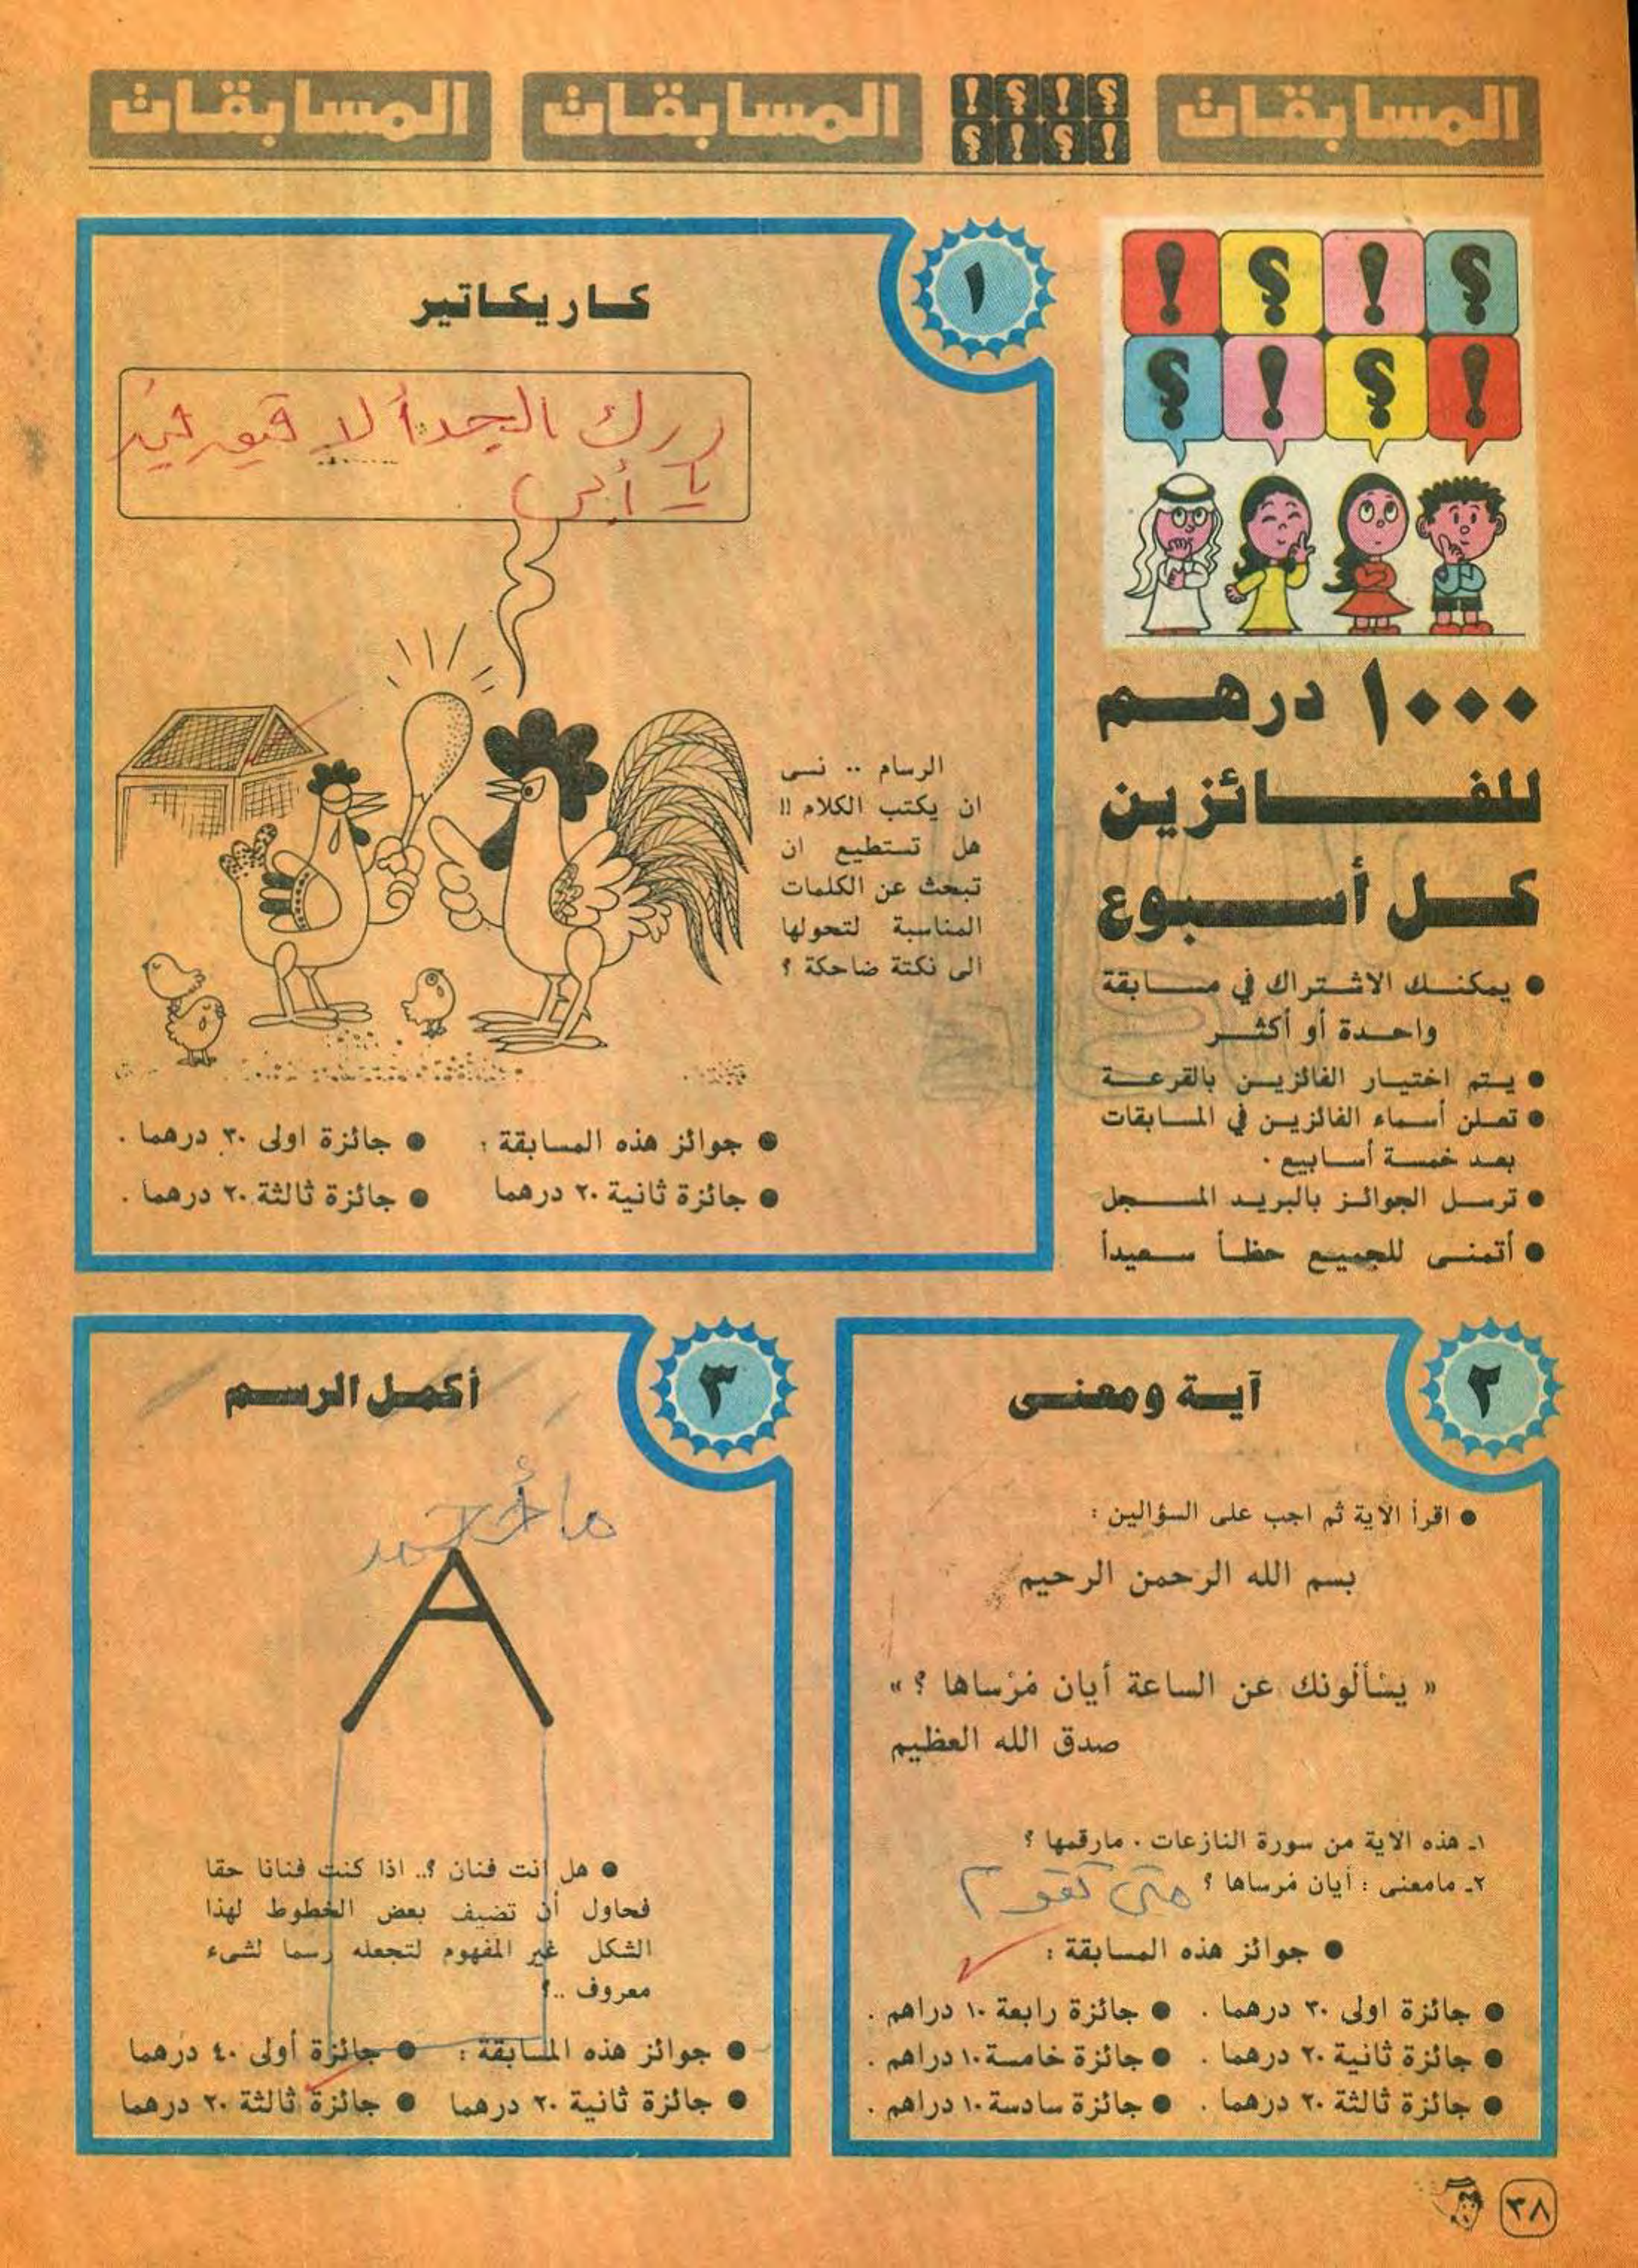 المسابقات
المسابقات
المسابقات
؟ ! ؟ !
! ؟ ! ؟
؟ ! ؟ !
! ؟ ! ؟
١٠٠٠ درهم
للفائزين
كل أسبوع
● يمكنك الاشتراك في مسابقة
واحدة أو أكثر
● يتم اختيار الفائزين بالقرعة
● تعلن أسماء الفائزين في المسابقات
بعد خمسة أسابيع .
● ترسل الجوائز بالبريد المسجل
● أتمنى للجميع حظاً سعيداً
١
كاريكاتير
يا أبي
الرسام .. نسى
ان يكتب الكلام !!
هل تستطيع ان
تبحث عن الكلمات
المناسبة لتحولها
الى نكتة ضاحكة ؟
● جوائز هذه المسابقة : ● جائزة اولى ٣٠ درهما .
● جائزة ثانية ٢٠ درهما ● جائزة ثالثة ٢٠ درهما .
٢
آية ومعنى
● اقرأ الآية ثم اجب على السؤالين :
بسم الله الرحمن الرحيم
« يسْألونك عن الساعة أيان مُرْساها ؟ »
صدق الله العظيم
١ـ هذه الاية من سورة النازعات . مارقمها ؟
٢ـ مامعنى : أيان مُرساها ؟ متى تقوم
● جوائز هذه المسابقة :
● جائزة اولى ٣٠ درهما . ● جائزة رابعة ١٠ دراهم .
● جائزة ثانية ٢٠ درهما . ● جائزة خامسة ١٠ دراهم .
● جائزة ثالثة ٢٠ درهما . ● جائزة سادسة ١٠ دراهم .
٣
أكمل الرسم
● هل انت فنان ؟.. اذا كنت فنانا حقا
فحاول أن تضيف بعض الخطوط لهذا
الشكل غير المفهوم لتجعله رسما لشىء
معروف ..؟
● جوائز هذه المسابقة : ● جائزة أولى ٤٠ درهما
● جائزة ثانية ٢٠ درهما ● جائزة ثالثة ٢٠ درهما
٣٨